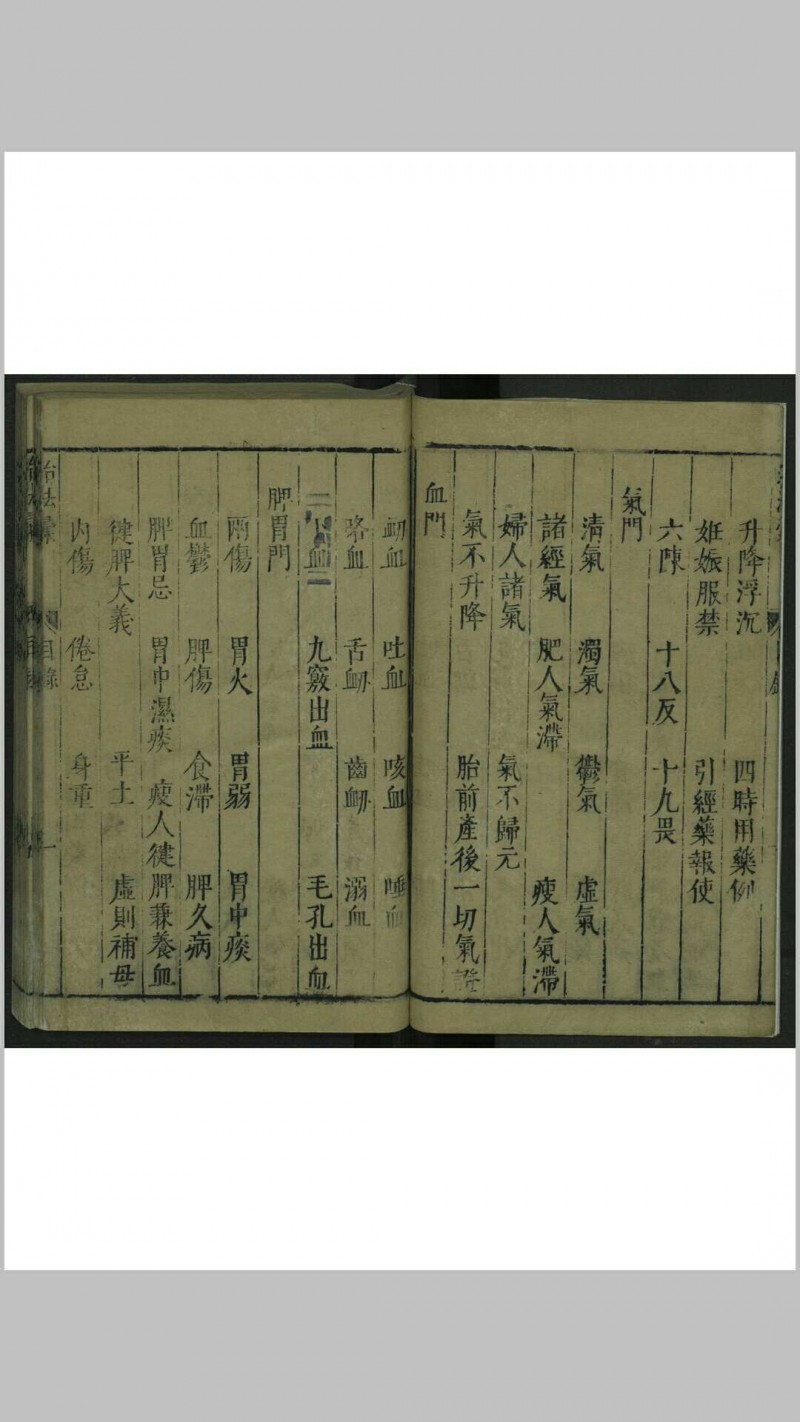 升降浮沉 四時用藥例
姙娠服禁 引經藥報使
六陳 十八反 十九畏
氣門
清氣 濁氣 鬱氣 虛氣
諸經氣 肥人氣滯 瘦人氣滯
婦人諸氣 氣不歸元
氣不升降 胎前產後一切氣證
血門
衂血 吐血 咳血 唾血
咯血 舌衂 齒衂 溺血
下血 九竅出血 毛孔出血
脾胃門
兩傷 胃火 胃弱 胃中痰
血鬱 脾傷 食滯 脾久病
脾胃忌 胃中濕痰 瘦人徤脾兼養血
徤脾大義 平土 虛則補母
內傷 倦怠 身重
治法彙 目錄 一